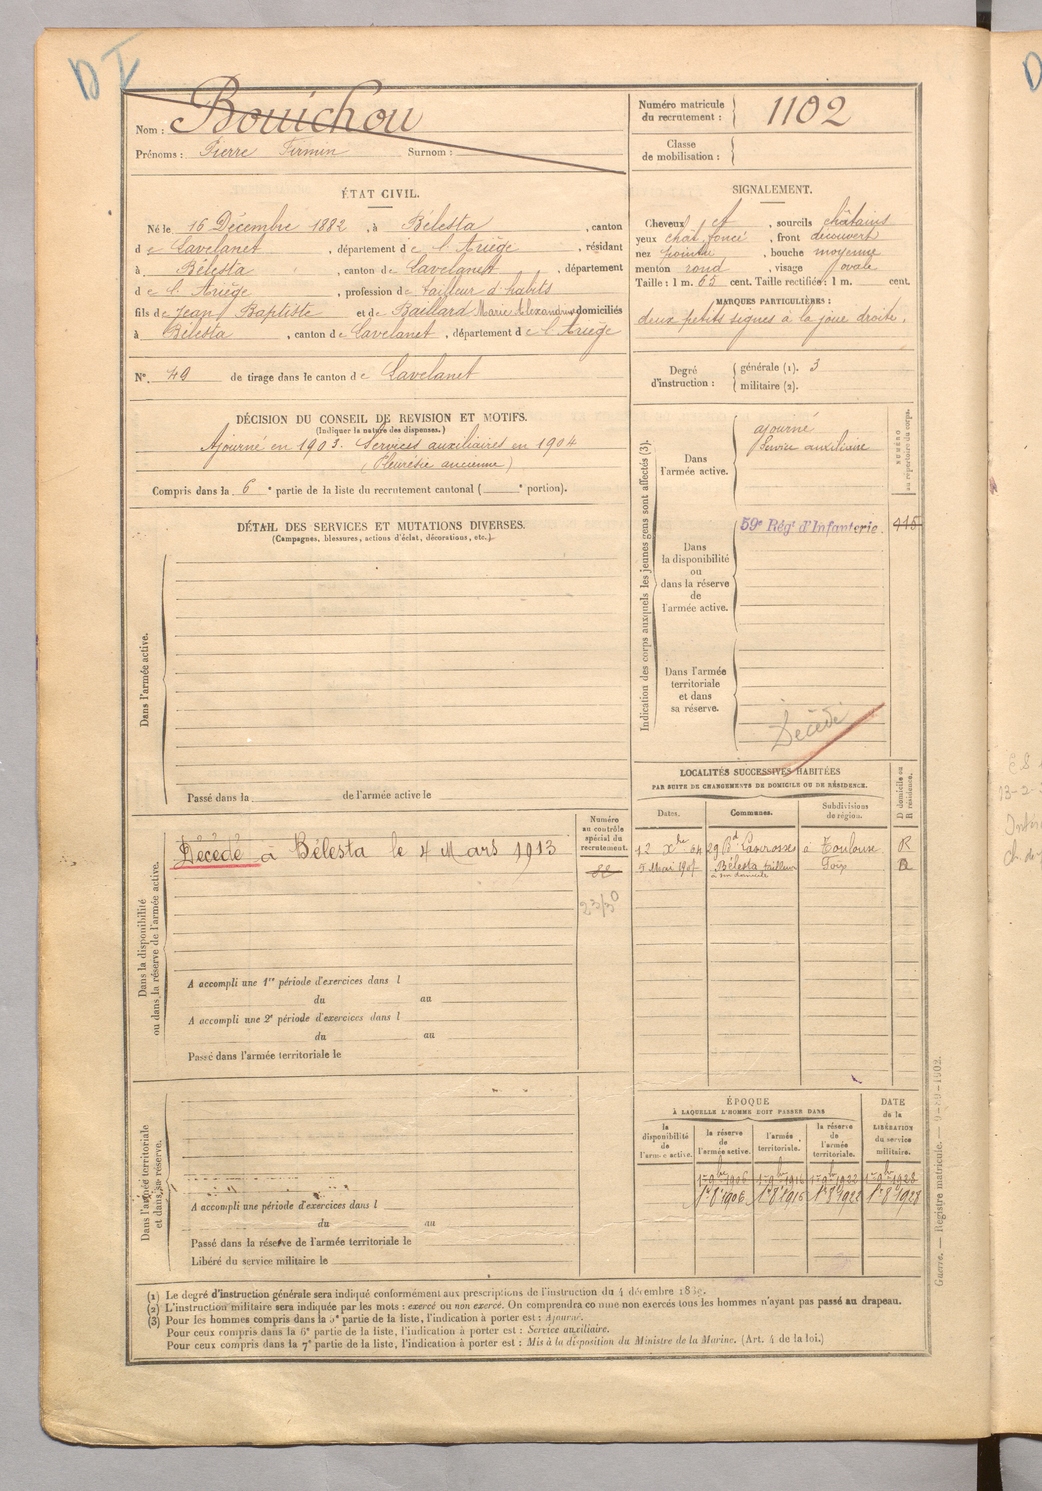 D
Nom : Bouichou
Prénoms : Pierre Firmin Surnom :
Numéro matricule du recrutement : 1102
Classe de mobilisation :
ÉTAT CIVIL.
Né le 16 Décembre 1882, à Bélesta, canton
de Lavelanet, département de l'Ariège, résidant
à Bélesta, canton de Lavelanet, département
de l'Ariège, profession de tailleur d'habits
fils de Jean Baptiste et de Baillard Marie Alexandrine domiciliés
à Bélesta, canton de Lavelanet, département de l'Ariège
N° 49 de tirage dans le canton de Lavelanet
SIGNALEMENT.
Cheveux et, sourcils châtains
yeux chât. foncé, front découvert
nez pointu, bouche moyenne
menton rond, visage ovale
Taille : 1 m. 65 cent. Taille rectifiée : 1 m. cent.
MARQUES PARTICULIÈRES :
deux petits signes à la joue droite.
Degré d'instruction : générale (1). 3
militaire (2).
DÉCISION DU CONSEIL DE REVISION ET MOTIFS.
(Indiquer la nature des dispenses.)
Ajourné en 1903. Services auxiliaires en 1904
(Pleurésie ancienne)
Compris dans la 6e partie de la liste du recrutement cantonal ( e portion).
Indication des corps auxquels les jeunes gens sont affectés (3).
NUMÉRO au répertoire du corps.
Dans l'armée active.
ajourné
Service auxiliaire
Dans la disponibilité ou dans la réserve de l'armée active.
59e Régt d'Infanterie.
Dans l'armée territoriale et dans sa réserve.
Décédé
DÉTAIL DES SERVICES ET MUTATIONS DIVERSES.
(Campagnes, blessures, actions d'éclat, décorations, etc.)
Dans l'armée active.
Passé dans la de l'armée active le
Dans la disponibilité ou dans la réserve de l'armée active.
Numéro au contrôle spécial du recrutement.
Décédé à Bélesta le 4 Mars 1913
A accompli une 1re période d'exercices dans l
du au
A accompli une 2e période d'exercices dans l
du au
Passé dans l'armée territoriale le
LOCALITÉS SUCCESSIVES HABITÉES
PAR SUITE DE CHANGEMENTS DE DOMICILE OU DE RÉSIDENCE.
D domicile ou R résidence.
Dates. Communes. Subdivisions de région.
12 Xbre 04 29 Bd Lascrosses à Toulouse R
5 Mai 190 Bélesta tailleur Foix D
à son domicile
Dans l'armée territoriale et dans sa réserve.
A accompli une période d'exercices dans l
du au
Passé dans la réserve de l'armée territoriale le
Libéré du service militaire le
ÉPOQUE
À LAQUELLE L'HOMME DOIT PASSER DANS
la disponibilité de l'armée active. la réserve de l'armée active. l'armée territoriale. la réserve de l'armée territoriale. DATE de la LIBÉRATION du service militaire.
1er 9bre 1906 1er 9bre 1916 1er 9bre 1922 1er 9bre 1928
1er 8bre 1906 1er 8bre 1916 1er 8bre 1922 1er 8bre 1928
(1) Le degré d'instruction générale sera indiqué conformément aux prescriptions de l'instruction du 4 décembre
(2) L'instruction militaire sera indiquée par les mots : exercé ou non exercé. On comprendra comme non exercés tous les hommes n'ayant pas passé au drapeau.
(3) Pour les hommes compris dans la 5e partie de la liste, l'indication à porter est : Ajourné.
Pour ceux compris dans la 6e partie de la liste, l'indication à porter est : Service auxiliaire.
Pour ceux compris dans la 7e partie de la liste, l'indication à porter est : Mis à la disposition du Ministre de la Marine. (Art. 4 de la loi.)
Guerre. — Registre matricule.